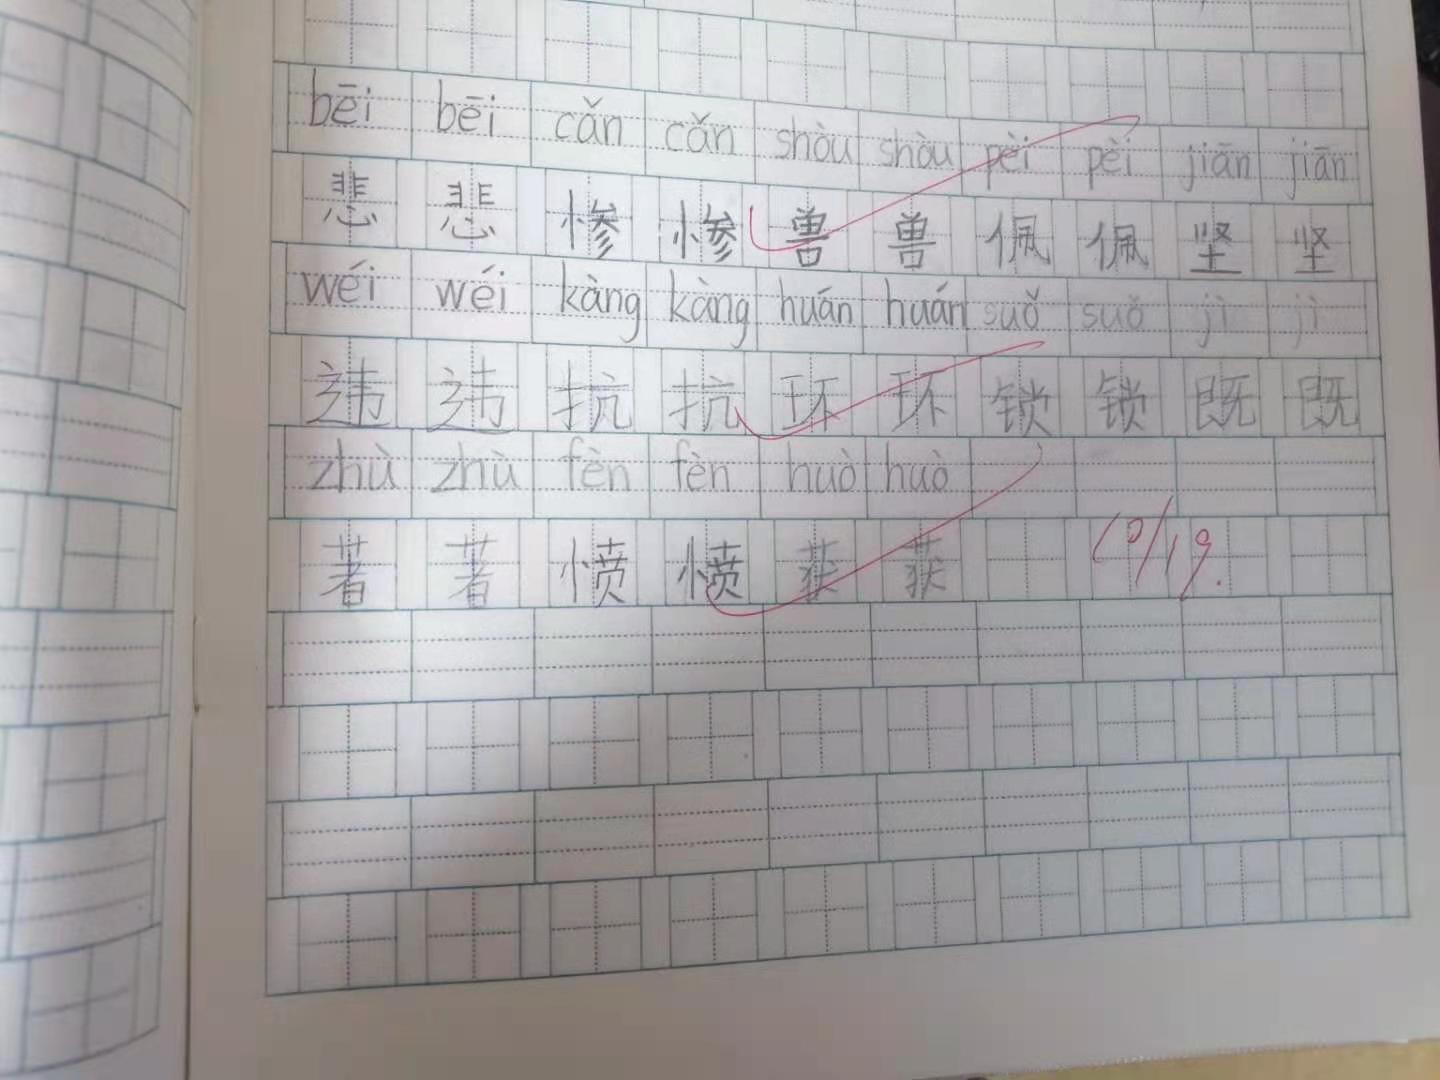 bēi bēi cǎn cǎn shòu shòu pèi pèi jiān jiān
悲 悲 惨 惨 兽 兽 佩 佩 坚 坚
wéi wéi kàng kàng huán huán suǒ suǒ jì jì
违 违 抗 抗 环 环 锁 锁 既 既
zhù zhù fèn fèn huò huò
著 著 愤 愤 获 获
10/19.